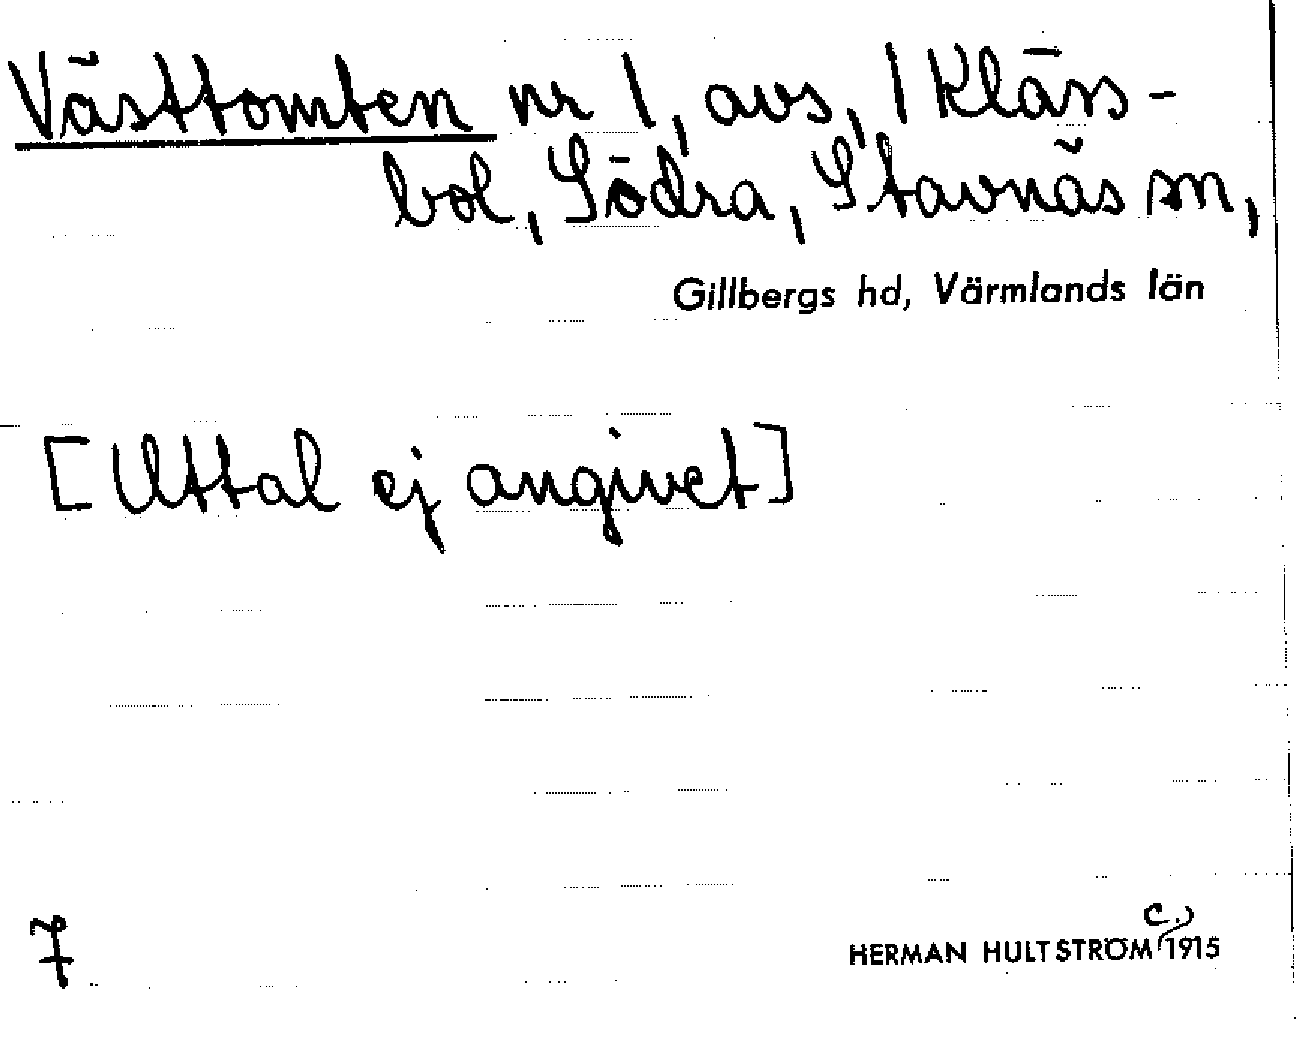 Västtomten nr 1, avs, 1 Kläss-
bol, Södra, Stavnäs sn,
Gillbergs hd, Värmlands län
[Uttal ej angivet]
7
c.
HERMAN HULTSTRÖM 1915